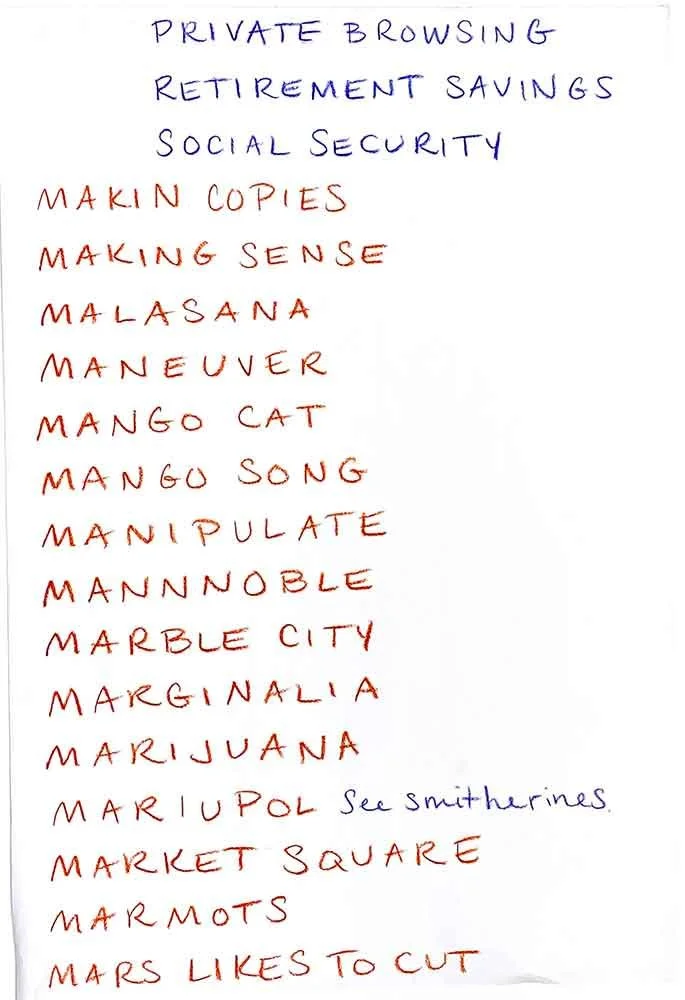 PRIVATE BROWSING
RETIREMENT SAVINGS
SOCIAL SECURITY
MAKIN COPIES
MAKING SENSE
MALASANA
MANEUVER
MANGO CAT
MANGO SONG
MANIPULATE
MANNNOBLE
MARBLE CITY
MARGINALIA
MARIJUANA
MARIUPOL See smitherines.
MARKET SQUARE
MARMOTS
MARS LIKES TO CUT